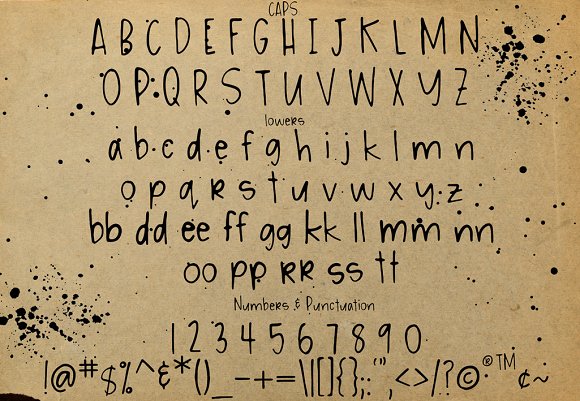 CAPS
A B C D E F G H I J K L M N
O P Q R S T U V W X Y Z
lowers
a b c d e f g h i j k l m n
o p q R s t u v w x y z
bb dd ee ff gg kk ll mm nn
oo pp RR ss tt
Numbers & Punctuation
1 2 3 4 5 6 7 8 9 0
!@#$%^&*()_-+=\|[]{};:'",<>/?©®™¢~